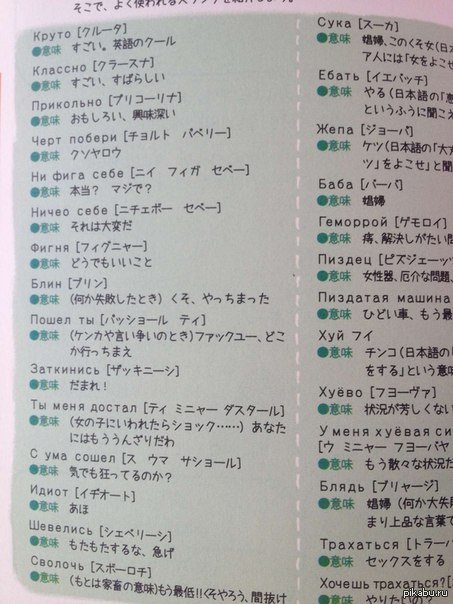 そこで、よく使われる
Круто [クルータ]
●意味 すごい。英語のクール
Классно [クラースナ]
●意味 すごい、すばらしい
Прикольно [プリコーリナ]
●意味 おもしろい、興味深い
Черт побери [チョルト パベリー]
●意味 クソヤロウ
Ни фига себе [ニイ フィガ セベー]
●意味 本当？ マジで？
Ничео себе [ニチェボー セベー]
●意味 それは大変だ
Фигня [フィグニャー]
●意味 どうでもいいこと
Блин [ブリン]
●意味 (何か失敗したとき) くそ、やっちまった
Пошел ты [パッショール ティ]
●意味 (ケンカや言い争いのとき)ファックユー、どこ
か行っちまえ
Заткинись [ザッキニーシ]
●意味 だまれ！
Ты меня достал [ティ ミニャー ダスタール]
●意味 (女の子にいわれたらショック……) あなた
にはもううんざりだわ
С ума сошел [ス ウマ サショール]
●意味 気でも狂ってるのか？
Идиот [イヂオート]
●意味 あほ
Шевелись [シェベリーシ]
●意味 もたもたするな、急げ
Сволочь [スボーロチ]
●意味 (もとは家畜の意味)もう最低!!くそやろう、間抜け
Сука [スーカ]
●意味 娼婦、このくそ女(日
ア人には「女をよこせ
Ебать [イエバッチ]
●意味 やる(日本語の「
というふうに聞こえ
Жепа [ジョーパ]
●意味 ケツ(日本語の「大
ツ」をよこせ」と聞
Баба [バーバ]
●意味 娼婦
Геморрой [ゲモロイ]
●意味 痔、解決しがたい問
Пиздец [ピズジェーッ
●意味 女性器、厄介な問題、
Пиздатая машина
●意味 ひどい車、もう最
Хуй フイ
●意味 チンコ(日本語の
をする」という意味
Хуёво [フヨーヴァ]
●意味 状況が芳しくない
У меня хуёвая си
[ウ ミニャー フヨーバヤ
●意味 もう散々な状況だ
Блядь [ブリャージ]
●意味 娼婦 (何か大失敗
まり上品な言葉で
Трахаться [トラーハ
●意味 セックスをする
Хочешь трахаться?[
●意味 やりたいの？
pikabu.ru